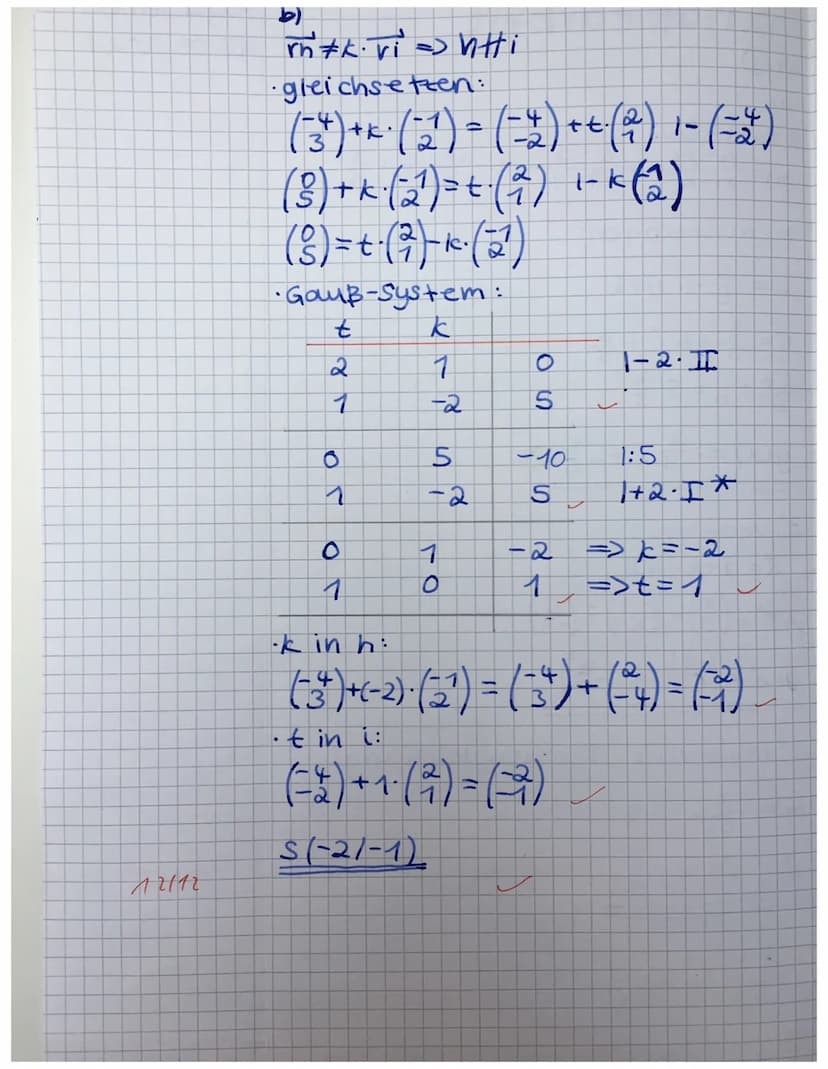 b)
r⃗h ≠ k · r⃗i => h∦i
· gleichsetzen:
(-4 3) + k · (-1 2) = (-4 -2) + t · (2 1) | - (-4 -2)
(0 5) + k · (-1 2) = t · (2 1) | - k (-1 2)
(0 5) = t · (2 1) - k · (-1 2)
· Gauß-System:
t k
2 1 0 | - 2 · II
1 -2 5 ✓
0 5 -10 | : 5
1 -2 5 ✓ | + 2 · I*
0 1 -2 => k = -2
1 0 1 ✓ => t = 1 ✓
· k in h:
(-4 3) + (-2) · (-1 2) = (-4 3) + (2 -4) = (-2 -1) ✓
· t in i:
(-4 -2) + 1 · (2 1) = (-2 -1) ✓
S(-2/-1)
12/12 ✓